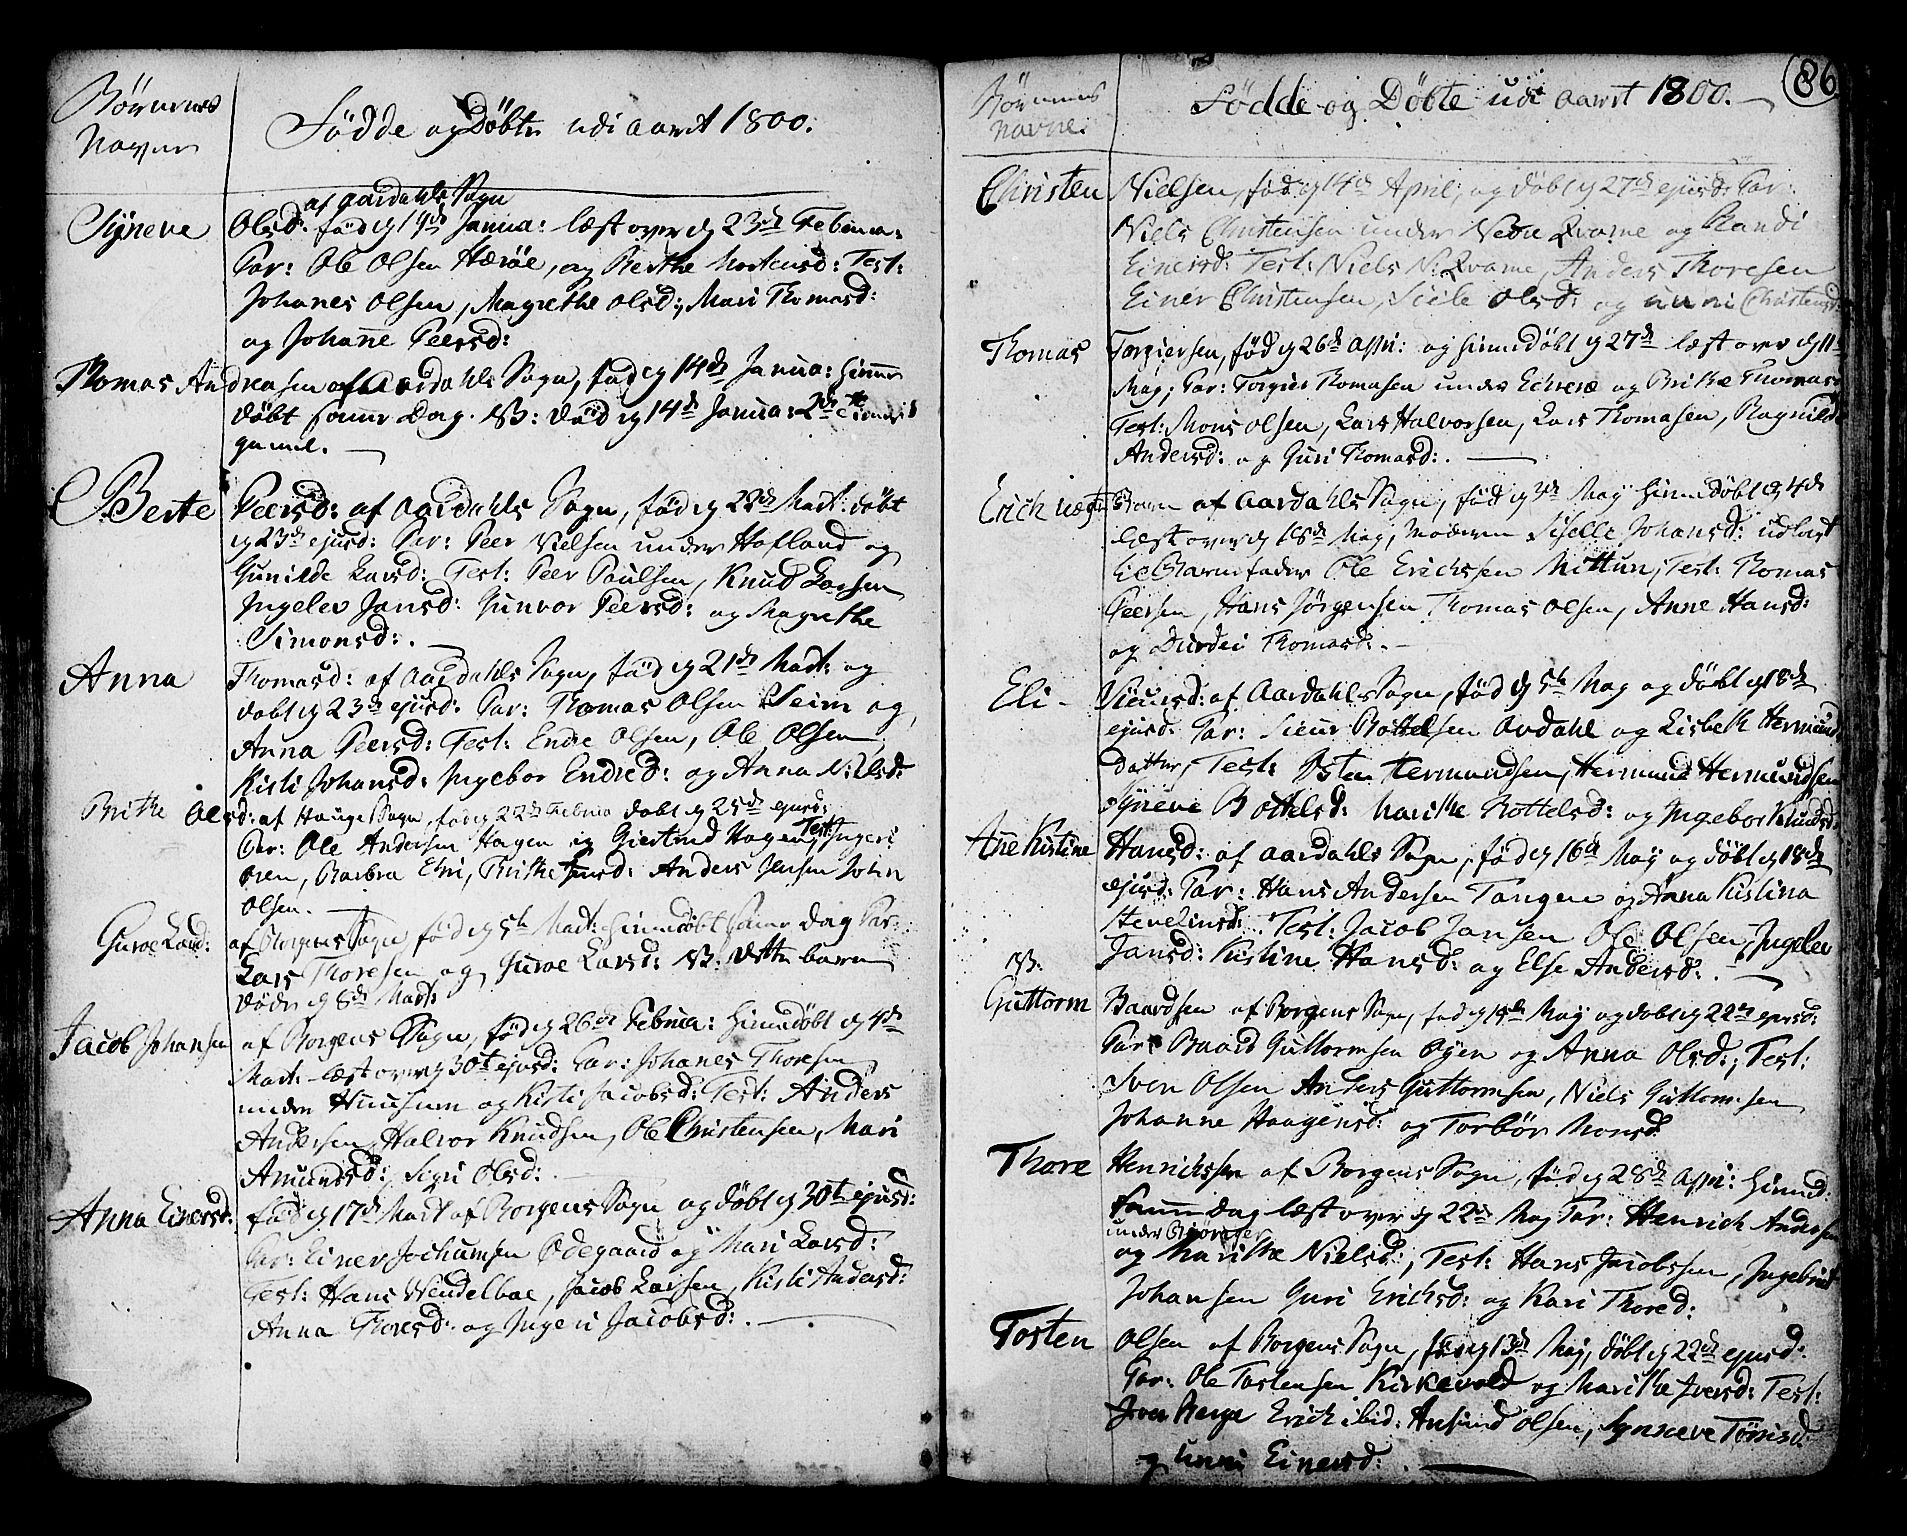 Børnenes
Navne
Fødde og Døbte udi aaret 1800.
af Aardahls Sogn
Synneve Olsd: fød d 19de Janua: læst over d 23de Februa:
Par: Ole Olsen Hærøe, og Berthe Mortensd: Test:
Johanes Olsen, Magrethe Olsd:, Mari Thomasd:
og Johanne Peersd:
Thomas Andreasen af Aardahls Sogn, fød d 14de Janua: hiemme
døbt samme Dag. NB: død d 14de Janua:
gammel.
Berte Peersd: af Aardahls Sogn, fød d 22de Mart: døbt
d 23de ejusd: Par: Peer Nielsen under Hofland og
Gunilde Larsd: Test: Peer Paulsen, Knud Larsen
Ingelev Jansd: Gunvor Peersd: og Magrethe
Simonsd:.
Anna Thomasd: af Aardahls Sogn, fød d 21de Mart: og
døbt d 23de ejusd: Par: Thomas Olsen Seim og
Anna Peersd: Test: Endre Olsen, Ole Olsen
Kisti Johansd: Ingebor Endred: og Anna Nielsd:
Brithe Olsd: af Hauge Sogn, fød d 22de Februa døbt d 25de ejusd:
Par: Ole Andersen Hagen og Giertrud Hagen, Test: Ingeri
Øren, Barbra Elvi, Brithe Andersd: Anders Jensen John
Olsen.
Guroe Larsd: af Borgens Sogn fød d 5te Mart: hiemmedøbt samme Dag Par:
Lars Thoresen og Guroe Larsd: NB: Dette barn
døde d 8de Mart:
Jacob Johansen af Borgens Sogn, fød d 26de Februa: hiemmedøbt d 4de
Mart: læst over d 30te ejusd: Par: Johanes Thoresen
under Huusum og Kisti Jacobsd: Test: Anders
Andersen, Halvor Knudsen, Ole Christensen, Mari
Amundsd: Sigri Olsd:
Anna Einersd: fød d 17de Mart af Borgens Sogn og døbt d 30te ejusd:
Par: Einer Jochumsen Ødegaard og Mari Larsd:
Test: Hans Wendelboe, Jacob Larsen, Kisti Andersd:
Anna Thoresd: og Ingeri Jacobsd:
86
Børnenes
Navne.
Fødde og Døbte udi aaret 1800.
Christen Nielsen, fød d 14de April, og døbt d 27de ejusd: Par:
Niels Christensen under Nedre Qvame og Randi
Einersd: Test: Niels N: Qvame, Anders Thoresen
Einer Christensen, Sicile Olsd: og Unni Christensd:
Thomas Torgiersen, fød d 26de Apri: og hiemmedøbt d 27de læst over d 11te
Maj; Par: Torgier Thomasen under Eidvere og Brithe Thomasd:
Test: Mons Olsen, Lars Halvorsen, Lars Thomasen, Ragnilde
Andersd: og Guri Thomasd:.
Erich uægte Barn af Aardahls Sogn, fød d 3de Maj hiemmedøbt d 4de
læst over d 18de Maj, moderen Siselle Johansd: udlagt
til Barnefader Ole Erichsen Mittun; Test: Thomas
Peersen, Hans Jørgensen Thomas Olsen, Anne Hansd:
og Durdei Thomasd:.
Eli Sieursd: af Aardahls Sogn, fød d 5te Maj og døbt d 18de
ejusd: Par: Sieur Bottelsen Avdahl og Lisbeth Hermund
Datter, Test: Østen Hermundsen, Hermund Hermundsen
Synneve Bottelsd: Marithe Bottelsd: og Ingebor Knudsd:
Ane Kistine Hansd: af Aardahls Sogn, fød d 16de Maj og døbt d 18de
ejusd: Par: Hans Andersen Tangen og Anna Kistina
Stevelinsd: Test: Jacob Jansen Ole Olsen, Ingelev
Jansd: Kistine Hansd: og Else Andersd:.
NB.
Guttorm Baardsen af Borgens Sogn, fød d 14de Maj og døbt d 22de ejusd:
Par: Baard Guttormsen Øyen og Anna Olsd:; Test:
Iver Olsen Anders Guttormsen, Niels Guttormsen
Johanne Haagensd: og Torbør Monsd
Thore Henrichsen af Borgens Sogn, fød d 28de Apri: hiemmed:
samme Dag læst over d 22de Maj Par: Henrich Andersen
under Biørnger
og Marithe Nielsd:, Test: Hans Jacobsen, Ingebrict
Johansen Guri Erichsd: og Kari Thored:
Tosten Olsen af Borgens Sogn, fød d 13de Maj, døbt d 22de ejusd:
Par: Ole Tostensen Kirkevold og Marithe Iversd: Test:
Iver Berge Erich ibid: Amund Olsen, Synneve Tørrisd:
og Unni Einersd:.